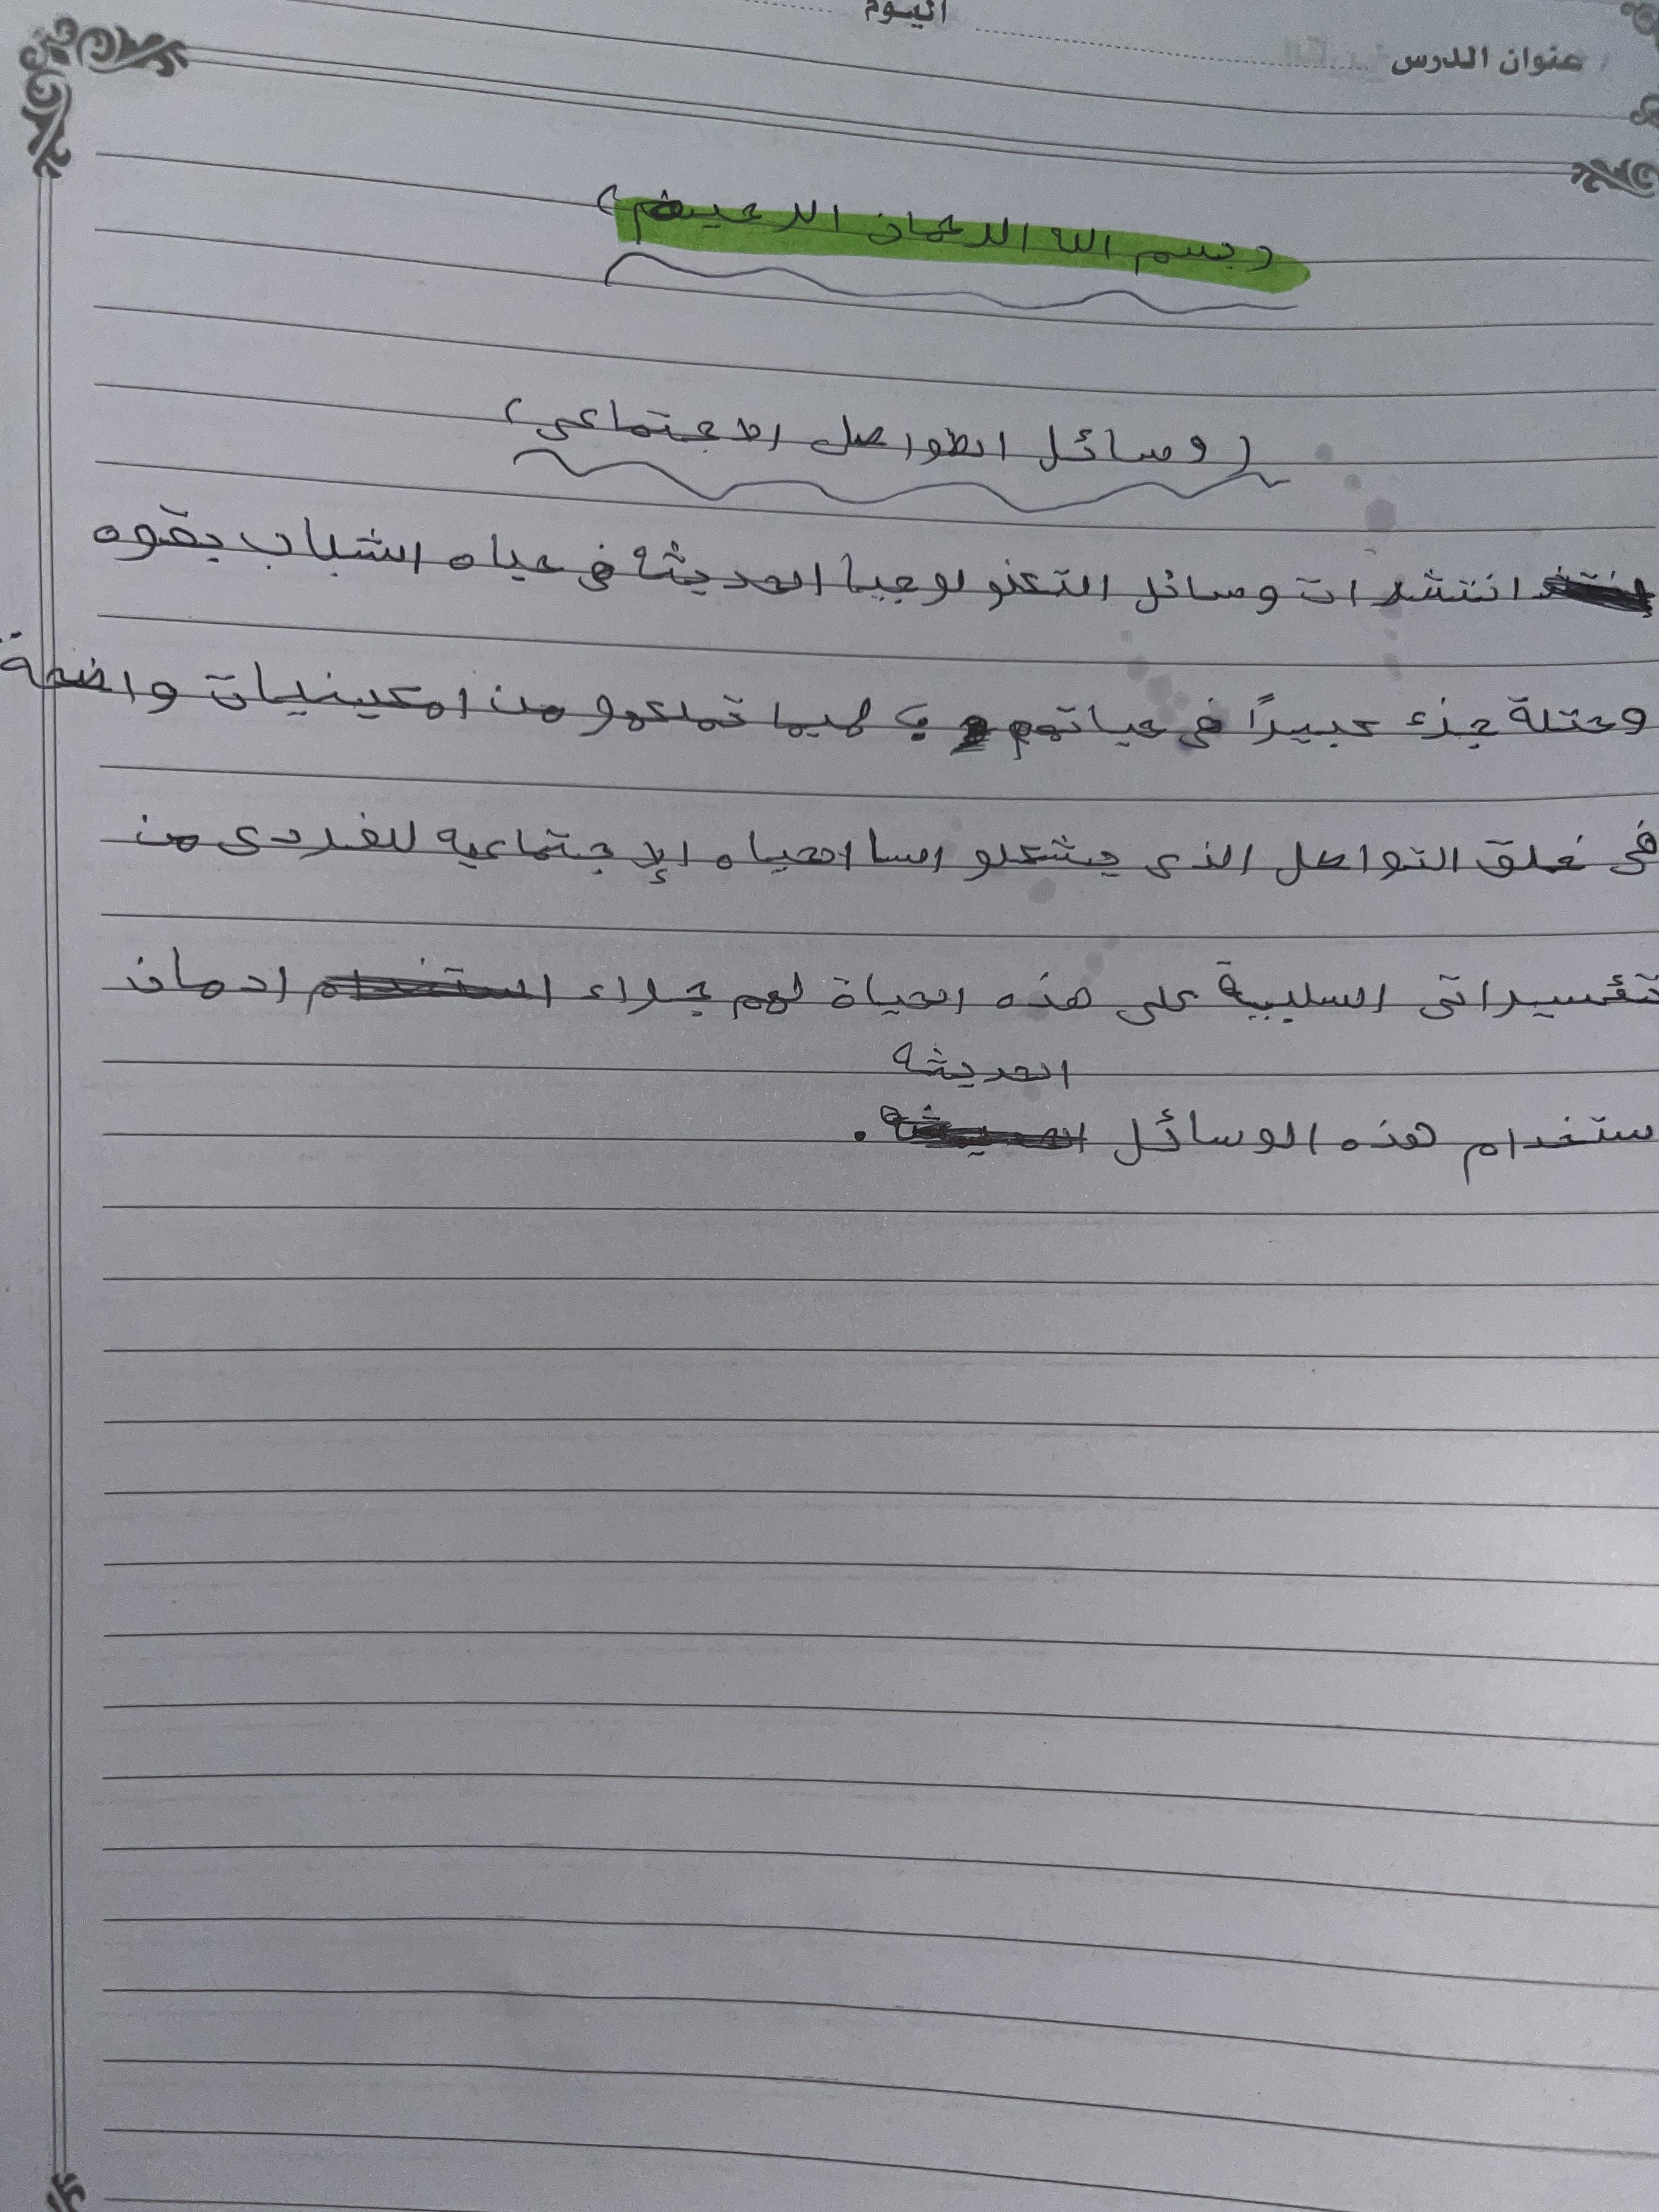 اليوم
عنوان الدرس
(بسم الله الرحمان الرحيم)
(وسائل التواصل الاجتماعي)
انتشرات وسائل التكنولوجيا الحديثه في حياه الشباب بقوه
وحتلة جزء كبيرًا في حياتهم لهيما تملكهو من امكينيات واضحة
في خلق التواصل الذي يشكلو اسا الحياه الإجتماعيه للفردى من
تئسيراتى السلبية على هذه الحياة لهم جراء ادمان
الحديثه
ستخدام هذه الوسائل .